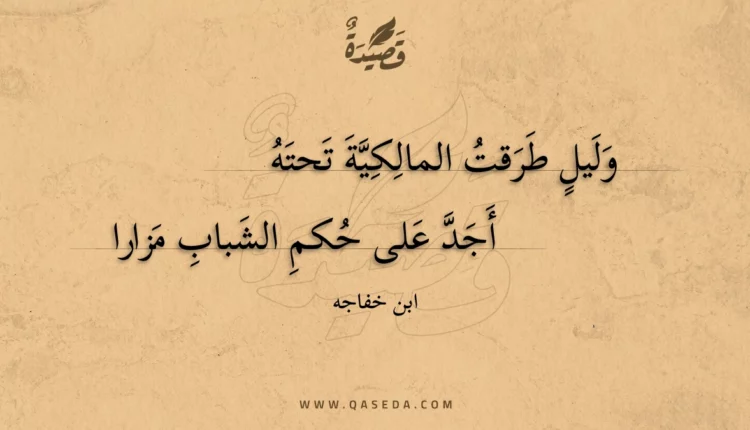 قَصِيدَةٌ
وَلَيلٍ طَرَقتُ المالِكِيَّةَ تَحتَهُ
أَجَدَّ عَلى حُكمِ الشَبابِ مَزارا
ابن خفاجه
WWW.QASEDA.COM